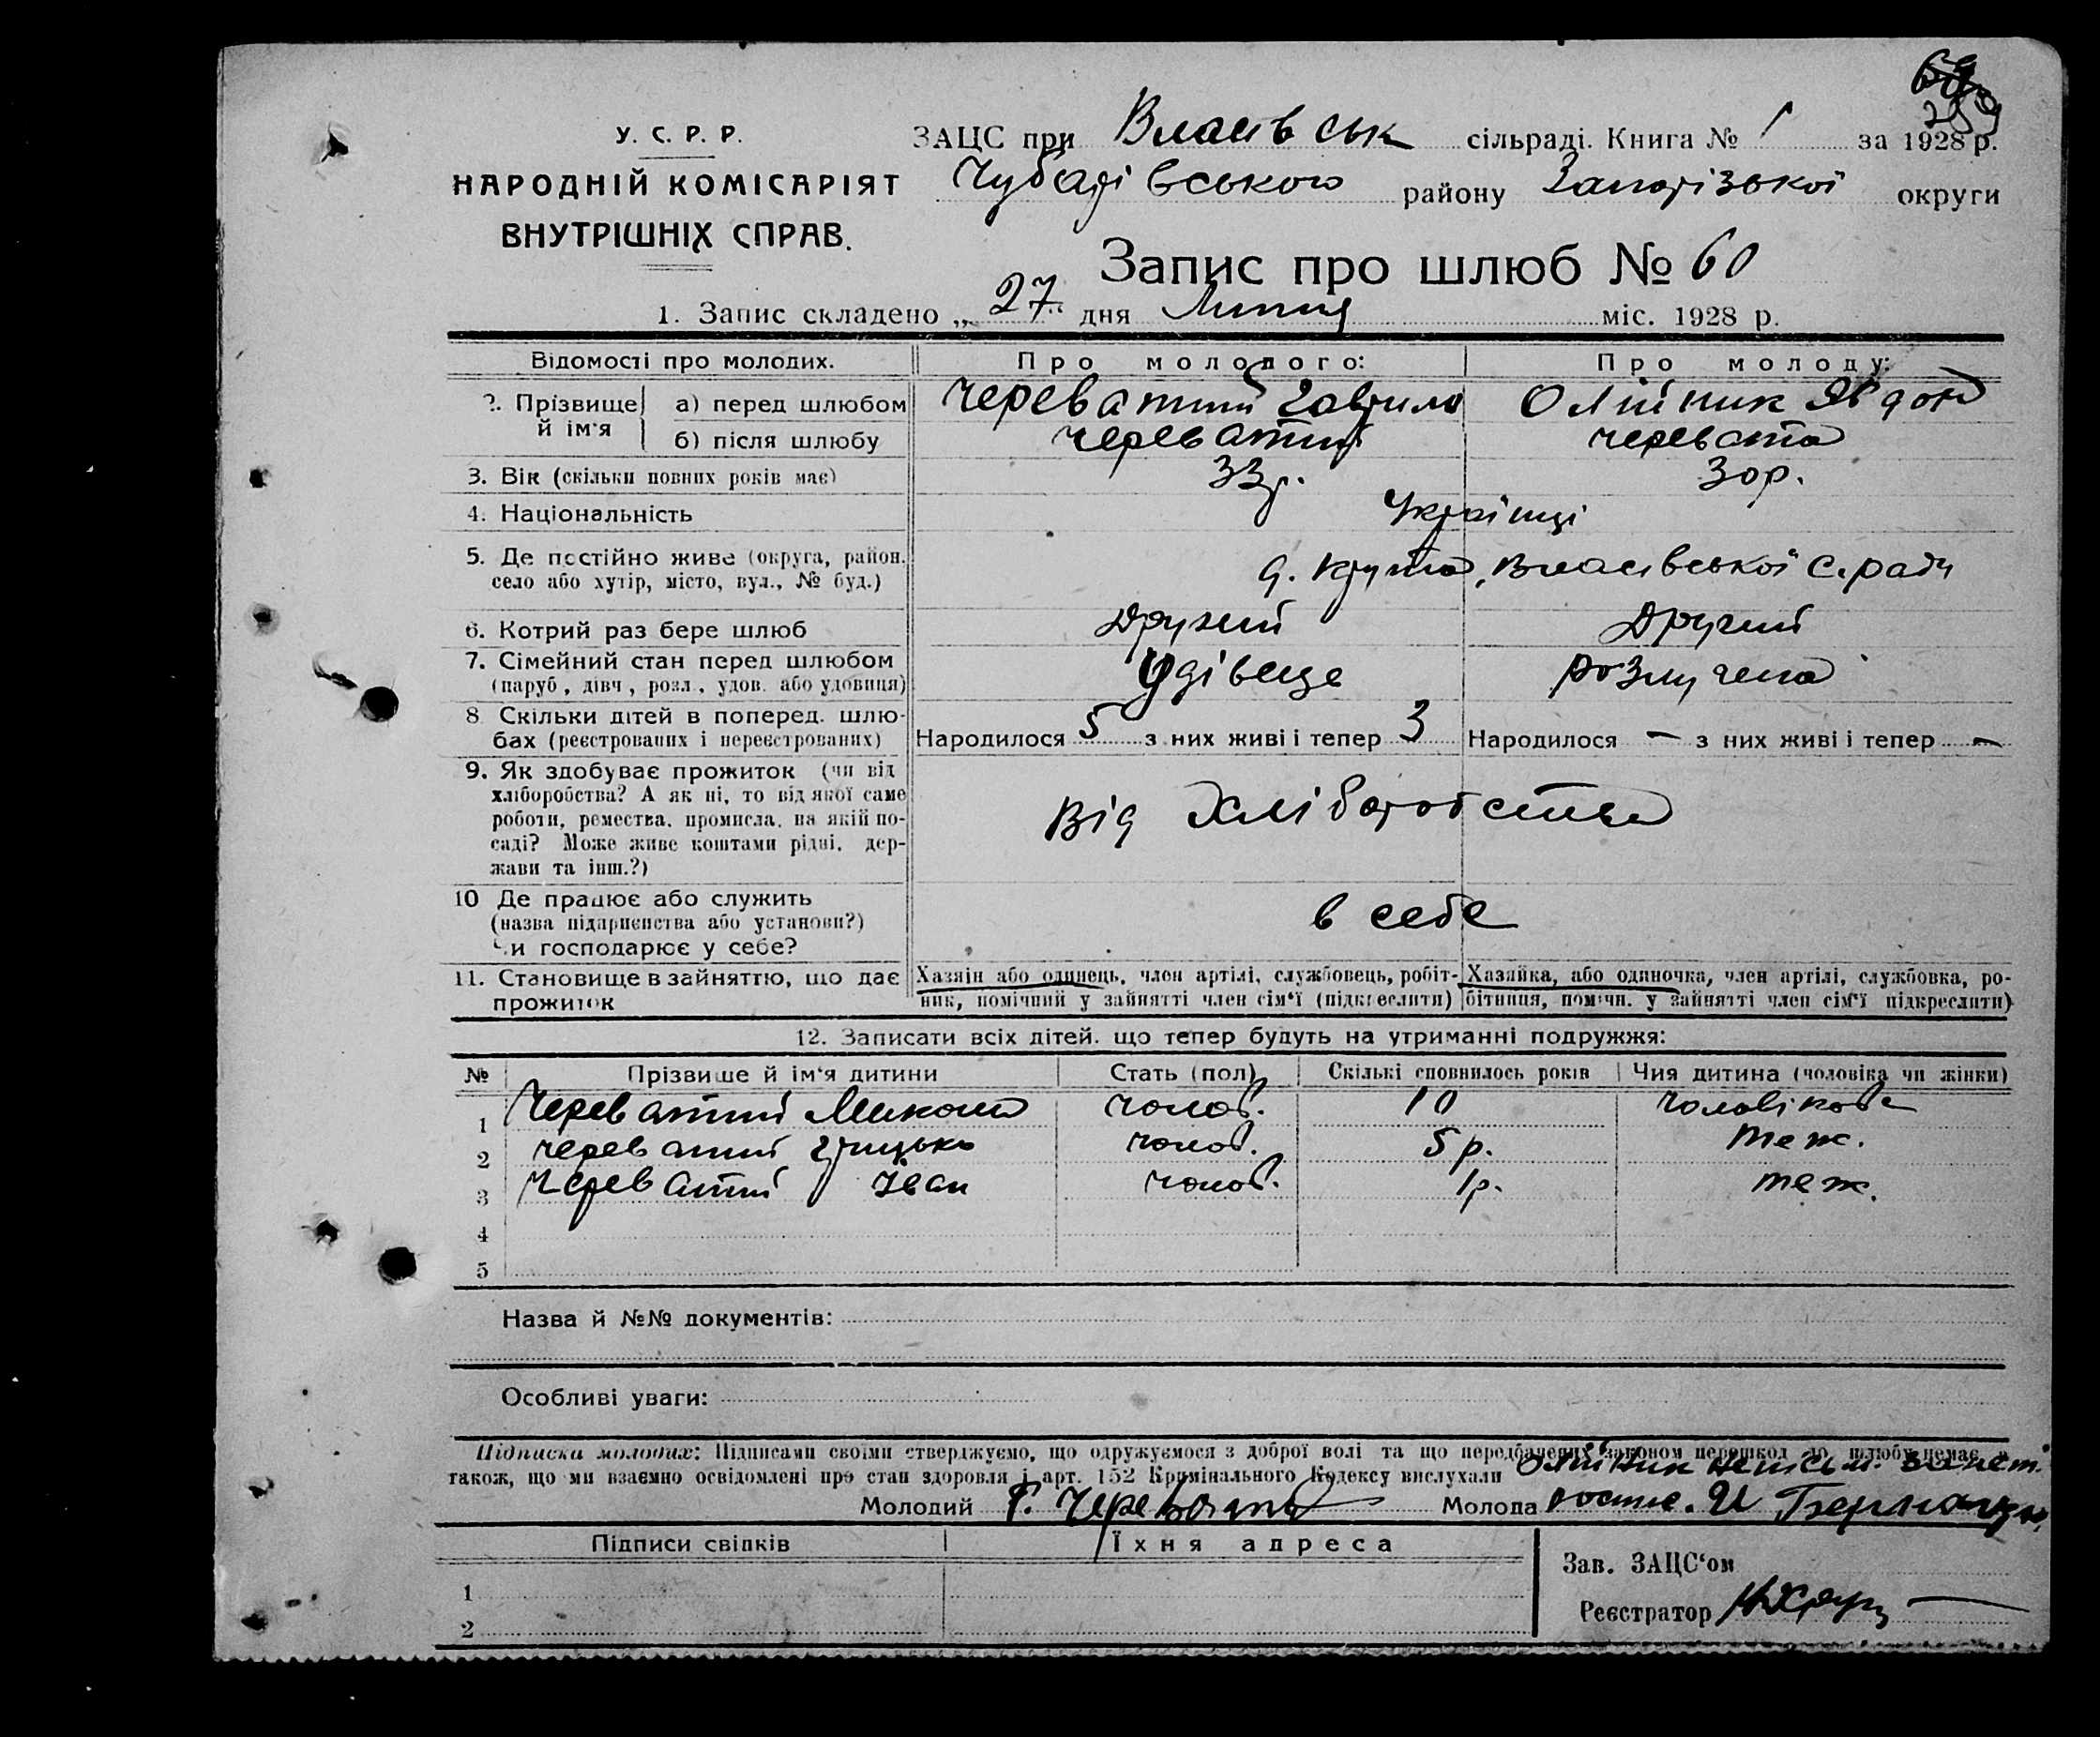 У. С. Р. Р.
НАРОДНІЙ КОМІСАРІЯТ
ВНУТРІШНІХ СПРАВ.
ЗАЦС при Власівськ сільраді. Книга № 1 за 1928 р.
Чубарівського району Запорізької округи
Запис про шлюб № 60
1. Запис складено „ 27 “ дня Липня міс. 1928 р.
Відомості про молодих. Про молодого: Про молоду:
2. Прізвище й ім'я а) перед шлюбом Череватий Гаврило Олійник Явдоха
б) після шлюбу Череватий Черевата
3. Вік (скільки повних років має) 33 р. 30 р.
4. Національність Українці
5. Де постійно живе (округа, район,
село або хутір, місто, вул., № буд.) д. Крута, Власівської С. ради
6. Котрий раз бере шлюб Другий Другий
7. Сімейний стан перед шлюбом
(паруб, дівч, розл., удов. або удовиця) Удівець розлучена
8 Скільки дітей в поперед. шлю-
бах (реєстрованих і нереєстрованих) Народилося 5 з них живі і тепер 3 Народилося — з них живі і тепер —
9. Як здобуває прожиток (чи від
хліборобства? А як ні, то від якої саме
роботи, ремества, промисла, на якій по-
саді? Може живе коштами рідні, дер-
жави та інш.?)
Від Хліборобства
10 Де працює або служить
(назва підприємства або установи?)
Чи господарює у себе?
в себе
11. Становище в зайняттю, що дає
прожиток
Хазяїн або одинець, член артілі, службовець, робіт-
ник, помічний у зайнятті член сім'ї (підкреслити)
Хазяйка, або одиночка, член артілі, службовка, ро-
бітниця, помічн. у зайнятті член сім'ї підкреслити)
12. Записати всіх дітей, що тепер будуть на утриманні подружжя:
№ Прізвище й ім'я дитини Стать (пол) Скількі сповнилось років Чия дитина (чоловіка чи жінки)
1 Череватий Микола чолов. 10 Чоловікова
2 Череватий Грицько чолов. 5 р. теж.
3 Череватий Іван чолов. 1 р. теж.
4
5
Назва й №№ документів:
Особливі уваги:
Підписка молодих: Підписами своїми стверджуємо, що одружуємося з доброї волі та що передбачених законом перешкод до шлюбу немає, а
також, що ми взаємно освідомлені про стан здоровля і арт. 152 Кримінального Кодексу вислухали Олійник
Молодий Г. Череват Молода
Підписи свідків Їхня адреса
1
2
Зав. ЗАЦС'ом
Реєстратор